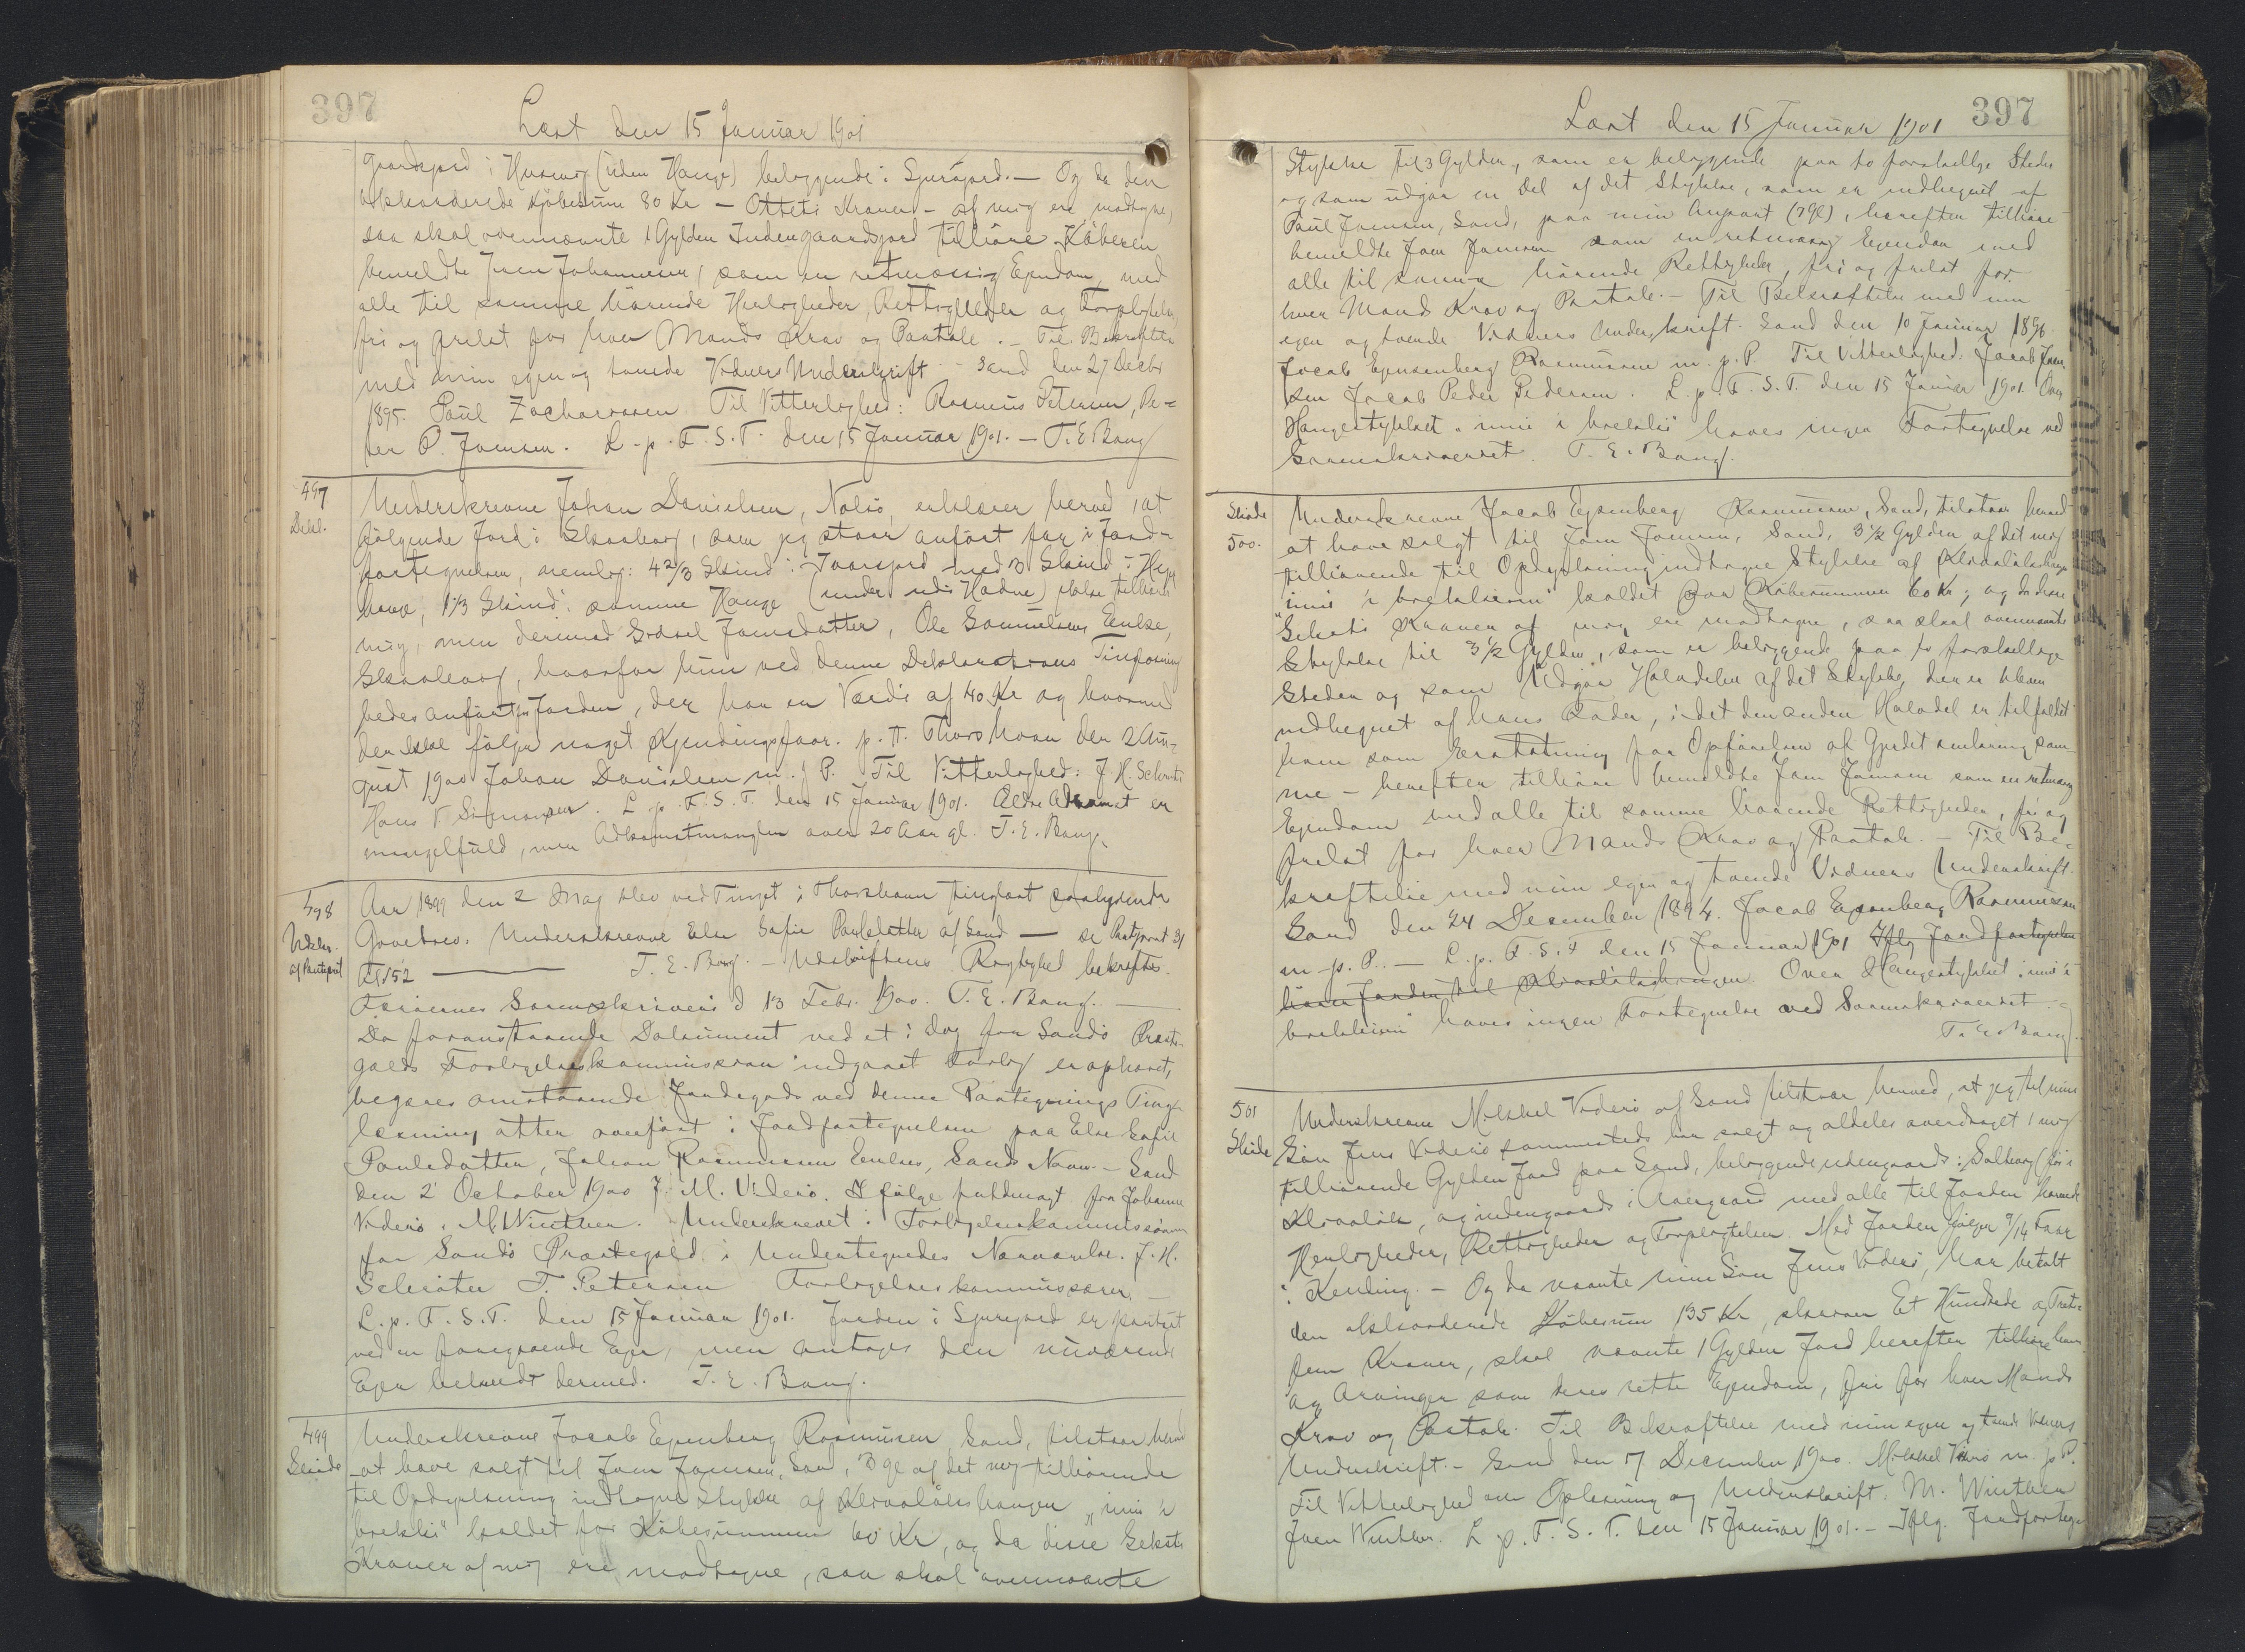 397
Læst den 15 Januar 1901
Gaardsjord i Husavig (uden Hauge) beliggende i Sjurdjord. — Og da den
akkorderede Kjöbesum 80 Kr — Otteti Kroner — af mig ere modtagne,
saa skal ovennævnte 1 Gylden Indengaardsjord tilhöre Köberen
bemeldte Joen Johannesen, som en retmæssig Ejendom med
alle til samme hörende Herligheder, Rettigheder og Forpligtelser
fri og frelst for hver Mands Krav og Paatale. — Til Bekræftelse
med min egen og tvende Vidners Underskrift — Sand den 27 Decbr
1895. Poul Zachariasen Til Vitterlighed: Rasmus Petersen, Pe-
ter P. Joensen. L. p. F. S. T. den 15 Januar 1901. — T. E. Bang
497
Dekl.
Underskrevne Johan Danielsen, Nolsö, erklærer herved, at
fölgende Jord i Skaalevig, som jeg staar anfört for i Jord-
fortegnelsen, nemlig: 4 2/3 Skind i Ivarsjord med 3 Skind i
hauge, 1 1/3 Skind i samme Hauge (under udi Hadne) ikke tilhörer
mig, men derimod Sidsel Joensdatter, Ole Samuelsens Enke,
Skaalevig, hvorfor hun ved denne Deklarations Tinglæsning
bedes anfört for Jorden, der har en Værdi af 40 Kr og hvormed
der skal fölge noget Kjendingsfaar. p. t. Thorshavn den 2 Au-
gust 1900 Johan Danielsen m. f. P. Til Vitterlighed: J. H. Schröter
Hans V. Simonsen. L. p. F. S. T. den 15 Januar 1901. Ældre Adkomst er
mangelfuld, men Adkomstmanglen over 20 Aar gl. T. E. Bang.
498
Udslet.
af Panteprot
Aar 1899 den 2 Maj blev ved Tinget i Thorshavn tinglæst saalydende
Gavebrev. Underskrevne Else Sofie Poulsdatter af Sand — se Pantprot 31
Fol 152 — T. E. Bang. — Udskriftens Rigtighed bekræftes.
Færöernes Sorenskriveri d 13 Febr. 1900. T. E. Bang. —
Da foranstaaende Dokument ved et i Dag for Sandö Præste-
gjælds Forligelseskommission indgaaet Forlig er ophævet,
begjæres omstaaende Jordegods ved denne Paategnings Ting-
læsning atter overfört i Jordfortegnelsen paa Else Sofie
Poulsdatter, Johan Rasmussens Enkes, Sands Navn. — Sand
den 2' October 1900 J. M. Viderö. If fölge fuldmagt fra Johanne
Viderö. M. Winther. Underskrevet i Forligelseskommissionen
for Sandö Præstegjæld i Undertegnedes Nærværelse. J. H.
Schröter T. Petersen Forligelseskommissærer —
L. p. F. S. T. den 15 Januar 1901. Jorden i Sjurdjord er pantsat
ved en foregaaende Ejer, men antages den nuværende
Ejer bekendt dermed. T. E. Bang.
499
Sköde
Underskrevne Jacob Egenberg Rasmussen, Sand, tilstaar herved
at have solgt til Joen Joensen, Sand, 3 gl af det mig tilhörende
til Opdyrkning indtagne Stykke af Klivalökshaugen „inni á
brekki“ kaldet for Köbesummen 60 Kr, og da disse Seksti
Kroner af mig ere modtagne, saa skal ovennævnte
397
Læst den 15 Januar 1901
Stykke til 3 Gylden, som er beliggende paa to forskellige Steder
og som udgör en Del af det Stykke, som er indhegnet af
Poul Joensen, Sand, paa min Anpart (7 gl), herefter tilhöre
bemeldte Joen Joensen som en retmæssig Ejendom med
alle til samme hörende Rettigheder, fri og frelst for
hver Mands Krav og Paatale. — Til Bekræftelse med min
egen og tvende Vidners Underskrift. Sand den 10 Januar 1896.
Jocab Egensenberg Rasmussen m. p. P. Til Vitterlighed: Jacob Joen-
sen Jocab Peder Pedersen. L. p. F. S. T. den 15 Januar 1901. Over
Haugestykket „inni á brekki“ haves ingen Fortegnelse ved
Sorenskriveriet. T. E. Bang.
Sköde
500.
Underskrevne Jacob Egenberg Rasmussen, Sand, tilstaar herved
at have solgt til Joen Joensen, Sand, 3 1/2 Gylden af det mig
tilhörende til Opdyrkning indtagne Stykke af Klivalökshaugen
„inni á brekkum“ kaldet for Köbesummen 60 Kr, og da disse
Seksti Kroner af mig ere modtagne, saa skal ovennævnte
Stykke til 3 1/2 Gylden, som er beliggende paa to forskellige
Steder og som Udgör Halvdelen af det Stykke, der er bleven
indhegnet af hans Fader, idet den anden Halvdel er tilfaldet
ham som Erstatning for Opförelsen af Gjerdet omkring sam-
me — herefter tilhöre bemeldte Joen Joensen som en retmæssig
Ejendom med alle til samme hörende Rettigheder, fri og
frelst for hver Mands Krav og Paatale. — Til Be-
kræftelse med min egen og tvende Vidners Underskrift.
Sand den 24 December 1894. Jocab Egenberg Rasmussen
m. p. P. — L. p. F. S. T. den 15 Januar 1901 Iflg Jordfortegnelsen
hörer Jorden til Klivalökshaugen Over Haugestykket „inni á
brekkum“ haves ingen Fortegnelse ved Sorenskriveriet —
T. E. Bang.
501
Sköde
Underskrevne Mikkel Viderö af Sand tilstaar herved, at jeg til min
Sön Jens Viderö sammesteds har solgt og aldeles overdraget 1 mig
tilhörende Gylden Jord paa Sand, beliggende udengaards i Saltvig (för i
Klivalök, og indengaards i Aaregaard med alle til Jorden hörende
Herligheder, Rettigheder og Forpligtelser. Med Jorden fölger 9/14 Faar
i Kending. — Og da nævnte min Sön Jens Viderö, har betalt
den akkorderede Köbesum 135 Kr, skriver Et Hundrede og Treti-
fem Kroner, skal nævnte 1 Gylden Jord herefter tilhöre ham
og Arvinger som deres rette Ejendom, fri for hver Mands
Krav og Paatale. Til Bekræftelse med min egen og tvende Vidners
Underskrift. — Sand den 17 December 1900. Mikkel Viderö m. p. P.
Til Vitterlighed om Oplæsning og Underskrift. M. Winther
Joen Winther. L. p. F. S. T. den 15 Januar 1901. — Iflg. Jordforteg-